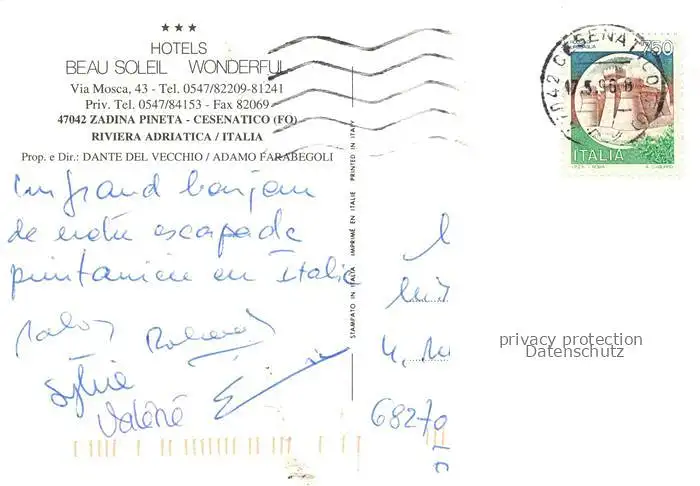 ★★★
HOTELS
BEAU SOLEIL WONDERFUL
Via Mosca, 43 - Tel. 0547/82209-81241
Priv. Tel. 0547/84153 - Fax 82069
47042 ZADINA PINETA - CESENATICO (FO)
RIVIERA ADRIATICA / ITALIA
Prop. e Dir.: DANTE DEL VECCHIO / ADAMO FARABEGOLI
Un grand bonjour
de notre escapade
printanière en Italie
Roland
Sylvie
Valérie
STAMPATO IN ITALIA IMPRIMÉ EN ITALIE PRINTED IN ITALY
47042 CESENATICO
750
ITALIA
68270
privacy protection
Datenschutz